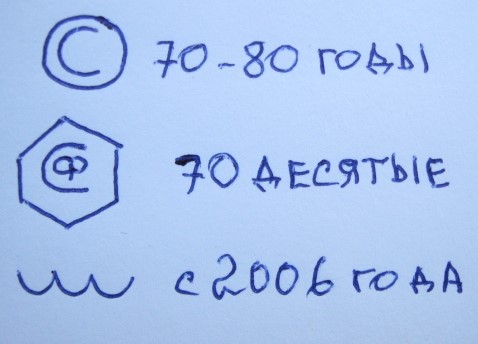 С 70-80 ГОДЫ
СФ 70 ДЕСЯТЫЕ
с 2006 ГОДА